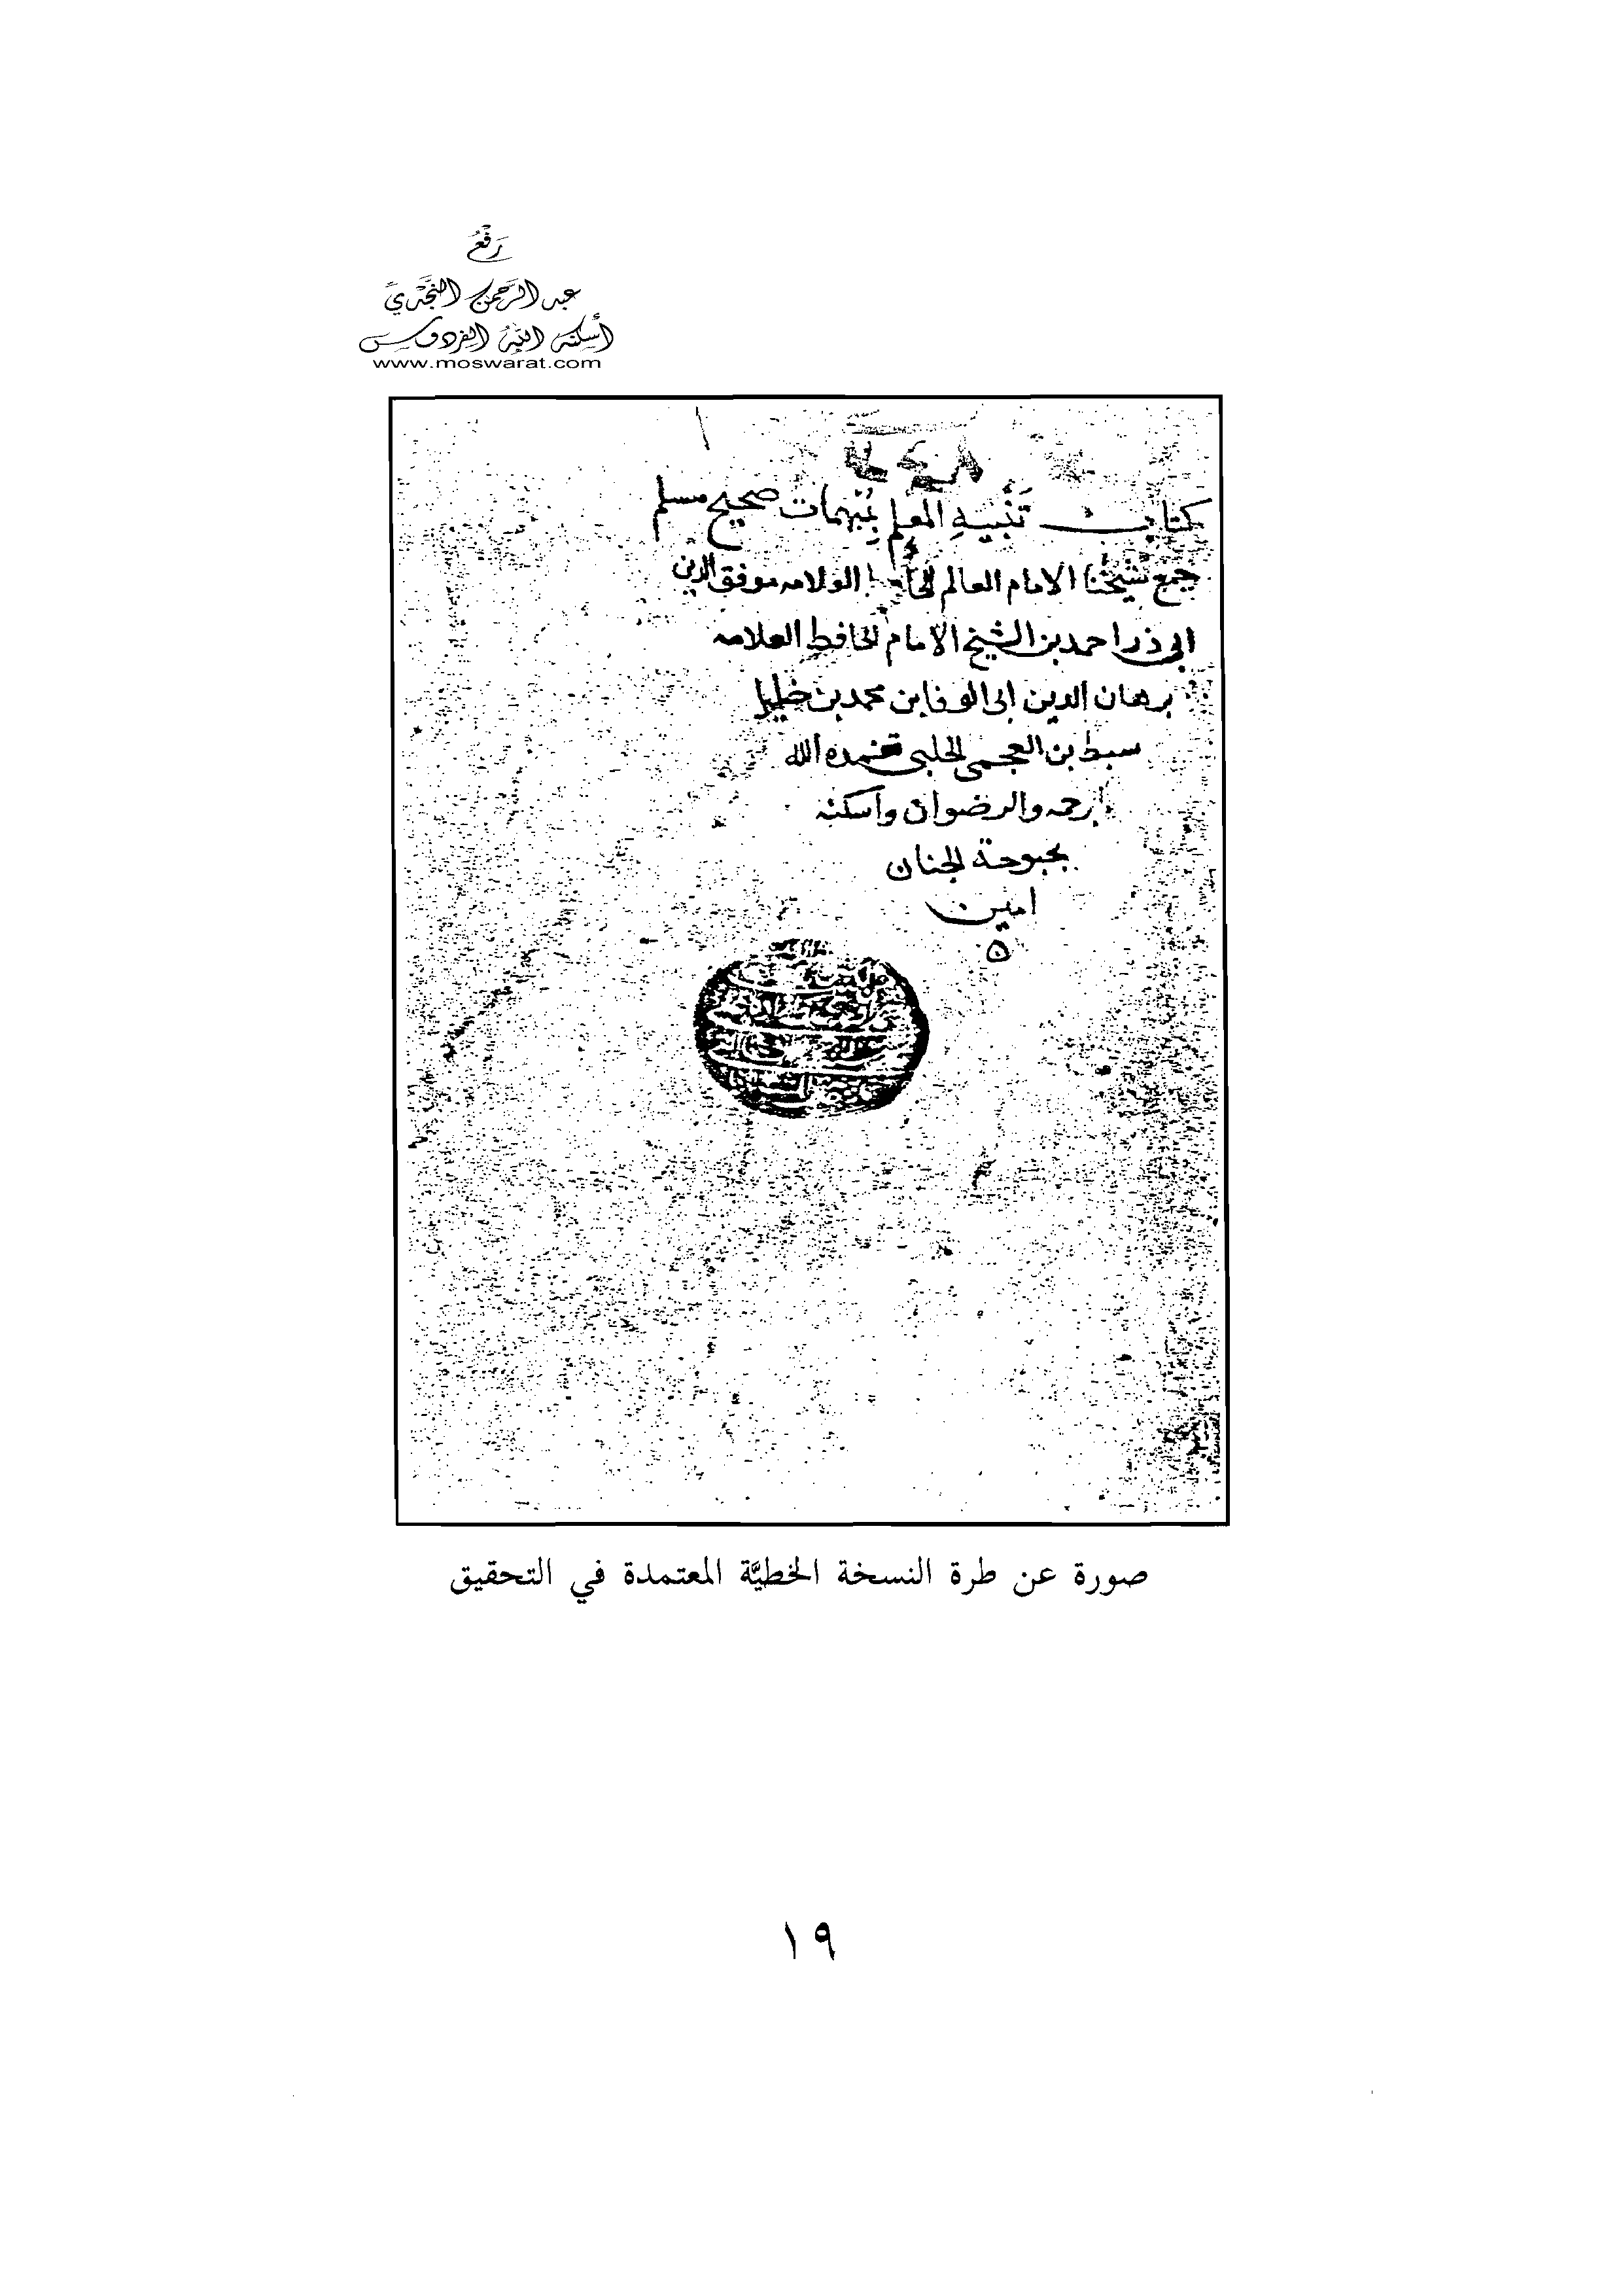 رَفْعُ
عبد الرَّحمن النَّجْدِيّ
أسكنه الله الفردوس
www.moswarat.com
كتاب تَنْبيهِ المعلم بمُبْهمات صحيح مسلم
جمع شيخنا الامام العالم الحافظ العلامه موفق الدين
ابي ذر احمد بن الشيخ الامام الحافظ العلامه
برهان الدين ابى الوفا بن محمد بن خليل
سبط بن العجمي الحلبي تغمده الله
برحمه والرضوان واسكنه
بحبوحة الجنان
امين
ه
صورة عن طرة النسخة الخطيَّة المعتمدة في التحقيق
١٩